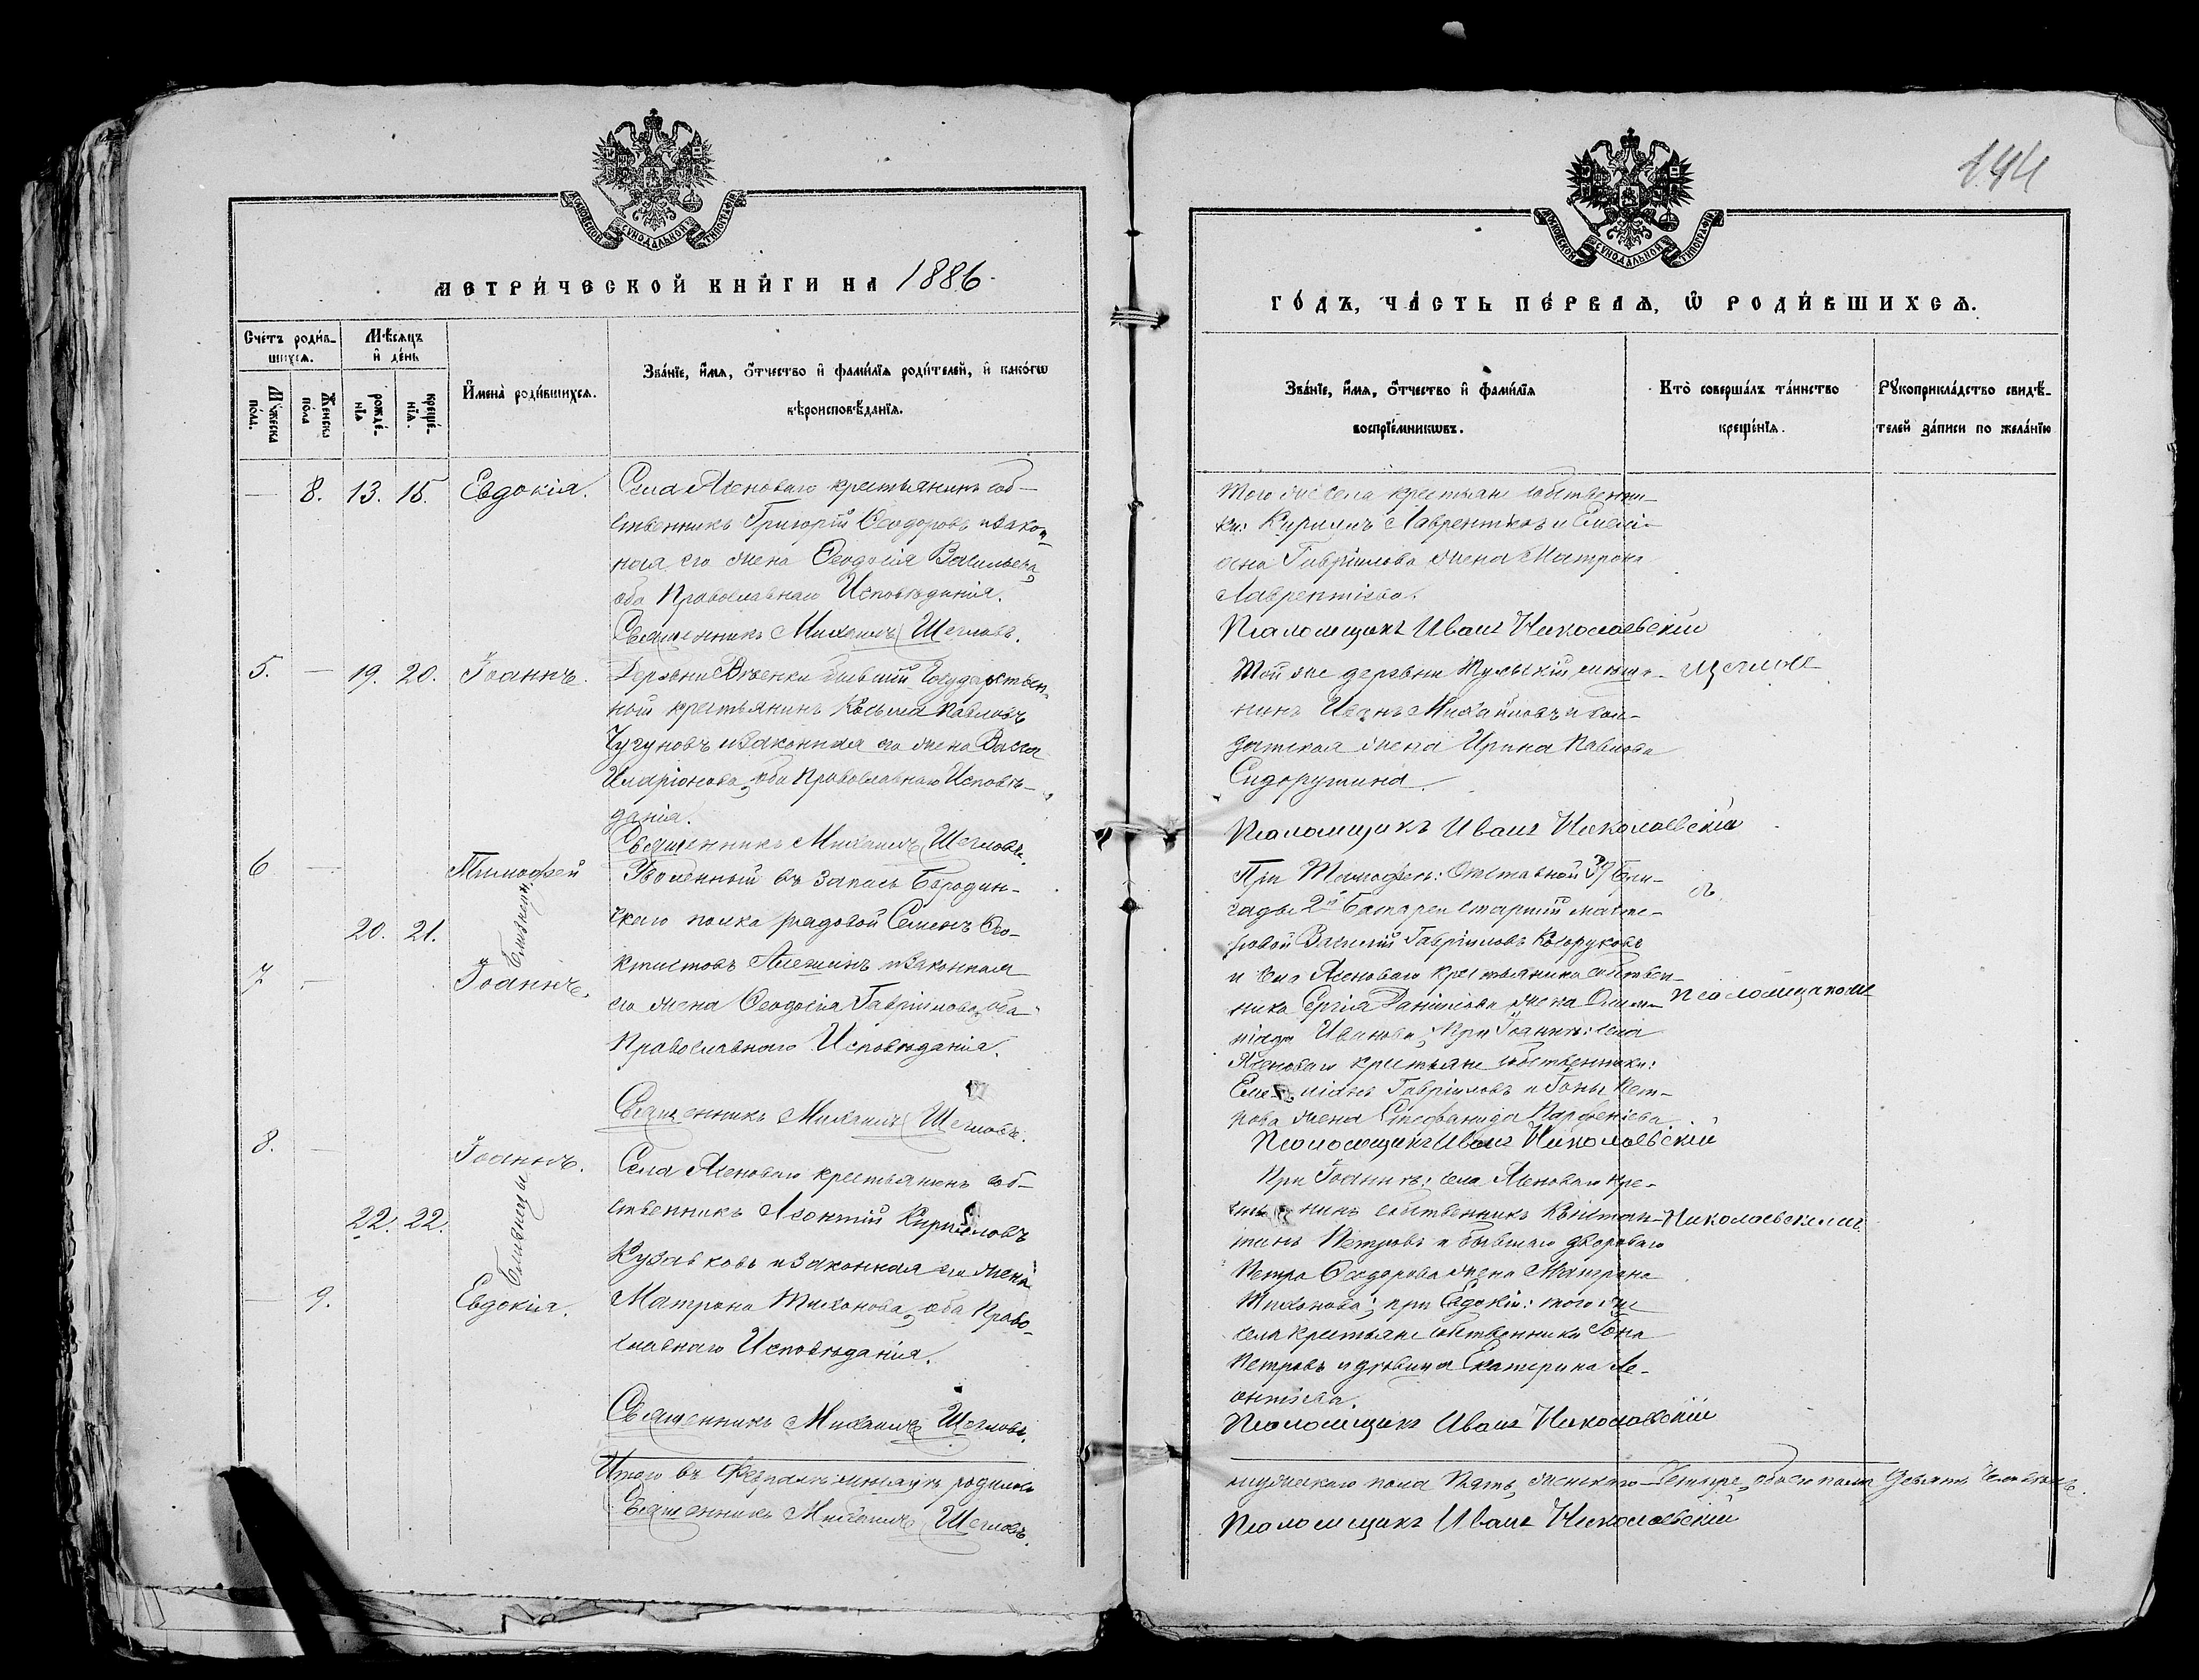 144
МОСКОВСКОЙ СѴНОДАЛЬНОЙ ТИПОГРАФІИ
МЕТРИ́ЧЕСКОЙ КНИ́ГИ НА 1886
Сче́тъ роди́в-
шихся.
Мѣ́сяцъ
и҆ де́нь
Му́жеска
по́ла.
Же́нска
по́ла
рожде́-
нїѧ
креще́-
нїѧ.
И҆мена̀ роди́вшихсѧ.
Зва́нїе, и҆́мѧ, ѻ҆́тчество и҆ фами́лїѧ роди́телей, и҆ како́гѡ
вѣроисповѣ́данїѧ.
— 8. 13. 15. Евдокія.
Села Ясеноваго крестьянинъ соб-
ственникъ Григорій Ѳеодоровъ и закон-
ная его жена Ѳеодосія Васильева,
оба Православнаго Исповѣданія.
Священникъ Михаилъ Щегловъ.
5. — 19. 20. Іоаннъ.
Деревни бывшій Государствен-
ной крестьянинъ Косьма Павловъ
Чугуновъ и законная его жена Васса
Иларіонова, оба Православнаго Исповѣ-
данія.
Священникъ Михаилъ Щегловъ.
6 — Тимофей
20. 21. Близнецы
7 — Іоаннъ.
Уволенный въ запасъ Бородин-
скаго полка рядовой Семенъ Ѳео-
ктистовъ Алешинъ и законная
его жена Ѳеодосія Гавріилова, оба
Православнаго Исповѣданія.
Священникъ Михаилъ Щегловъ.
8. — Іоаннъ.
22. 22. Близнецы
— 9. Евдокія.
Села Ясеноваго крестьянинъ соб-
ственникъ Леонтій Кирилловъ
Кузавковъ и законная его жена
Матрона Тихонова, оба Право-
славнаго Исповѣданія.
Священникъ Михаилъ Щегловъ.
Итого въ Февралѣ мѣсяцѣ родилось
Священникъ Михаилъ Щегловъ.
МОСКОВСКОЙ СѴНОДАЛЬНОЙ ТИПОГРАФІИ
ГО́ДЪ, ЧА́СТЬ ПЕ́РВАѦ, Ѽ РОДИ́ВШИХСѦ.
Зва́нїе, и҆́мѧ, ѻ҆́тчество и҆ фами́лїѧ
воспрїе́мникѡвъ.
Кто̀ соверша́лъ та́инство
креще́нїѧ.
Рꙋкоприкла́дство свидѣ́-
телей за́писи по жела́нїю
Того же села крестьяне собственни-
ки: Кириллъ Лаврентіевъ и Емелі-
ана Гавріилова жена Матрона
Лаврентіева.
Псаломщикъ Иванъ Николаевскій
Той же деревни Тульскій мѣща-
нинъ Иванъ Михайловъ и сол-
датская жена Ирина Павлова
Сидорушина.
Щегловъ
Псаломщикъ Иванъ Николаевскій
При Тимофеѣ: Отставной 39 Бри-
гады 2й батареи старшій масте-
ровой Василій Гавріиловъ Косоруковъ
и села Ясеноваго крестьянина собствен-
ника Сергія Даніилова жена Олим-
піада Иванова; при Іоаннѣ: села
Ясеноваго крестьяне собственники:
Емеліанъ Гавріиловъ и Іоны Пет-
рова жена Стефанида Парфеніева
съ
Псаломщикомъ
Псаломщикъ Иванъ Николаевскій
При Іоаннѣ: села Ясеноваго кре-
стьянинъ собственникъ Констан-
тинъ Петровъ и бывшаго двороваго
Петра Ѳеодорова жена Матрона
Тихонова; при Евдокіи: того же
села крестьяне собственники Іона
Петровъ и дѣвица Екатерина Ле-
онтіева.
Николаевскимъ
Псаломщикъ Иванъ Николаевскій
мужескаго пола Пять, женскаго — Четыре, обоего пола Девять человѣкъ.
Псаломщикъ Иванъ Николаевскій